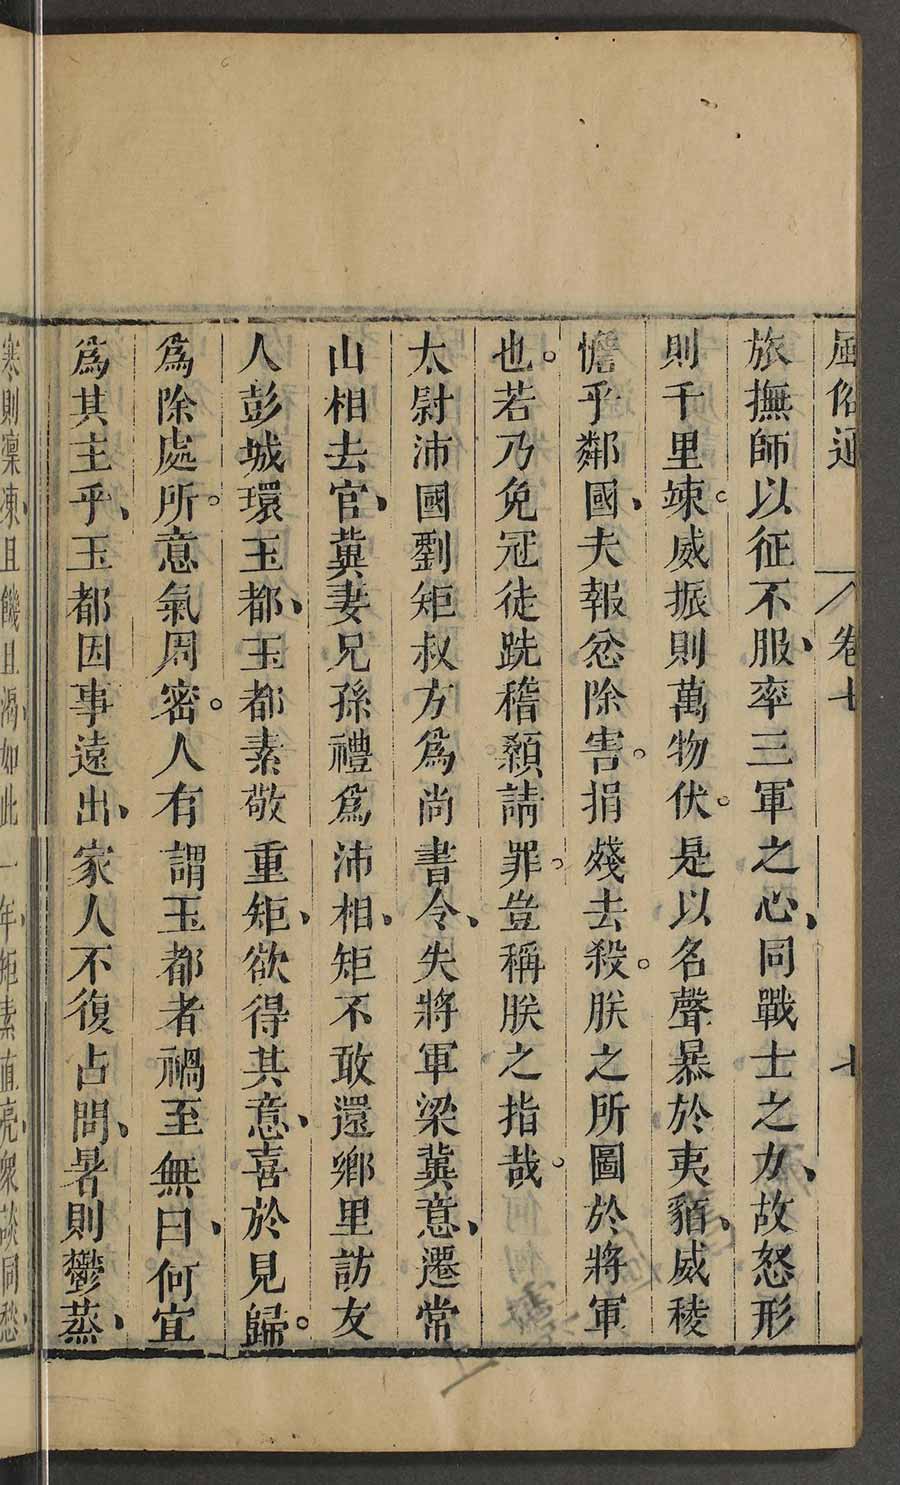 風俗通 卷七 七
旅撫師以征不服、率三軍之心、同戰士之力、故怒形
則千里竦。威振則萬物伏。是以名聲暴於夷貉、威稜
憺乎鄰國、夫報忿除害。捐殘去殺。朕之所圖於將軍
也。若乃免冠徒跣稽顙請罪。豈稱朕之指哉。
太尉沛國劉矩叔方爲尚書令、失將軍梁冀意、遷常
山相去官、冀妻兄孫禮爲沛相。矩不敢還鄉里訪友
人彭城環玉都、玉都素敬重矩、欲得其意、喜於見歸。
爲除處所。意氣周密。人有謂玉都者禍至無日、何宜
爲其主乎、玉都因事遠出、家人不復占問、暑則鬱蒸、
寒則凜凍、且饑且渴、如此一年、矩素直亮、衆談同愁、